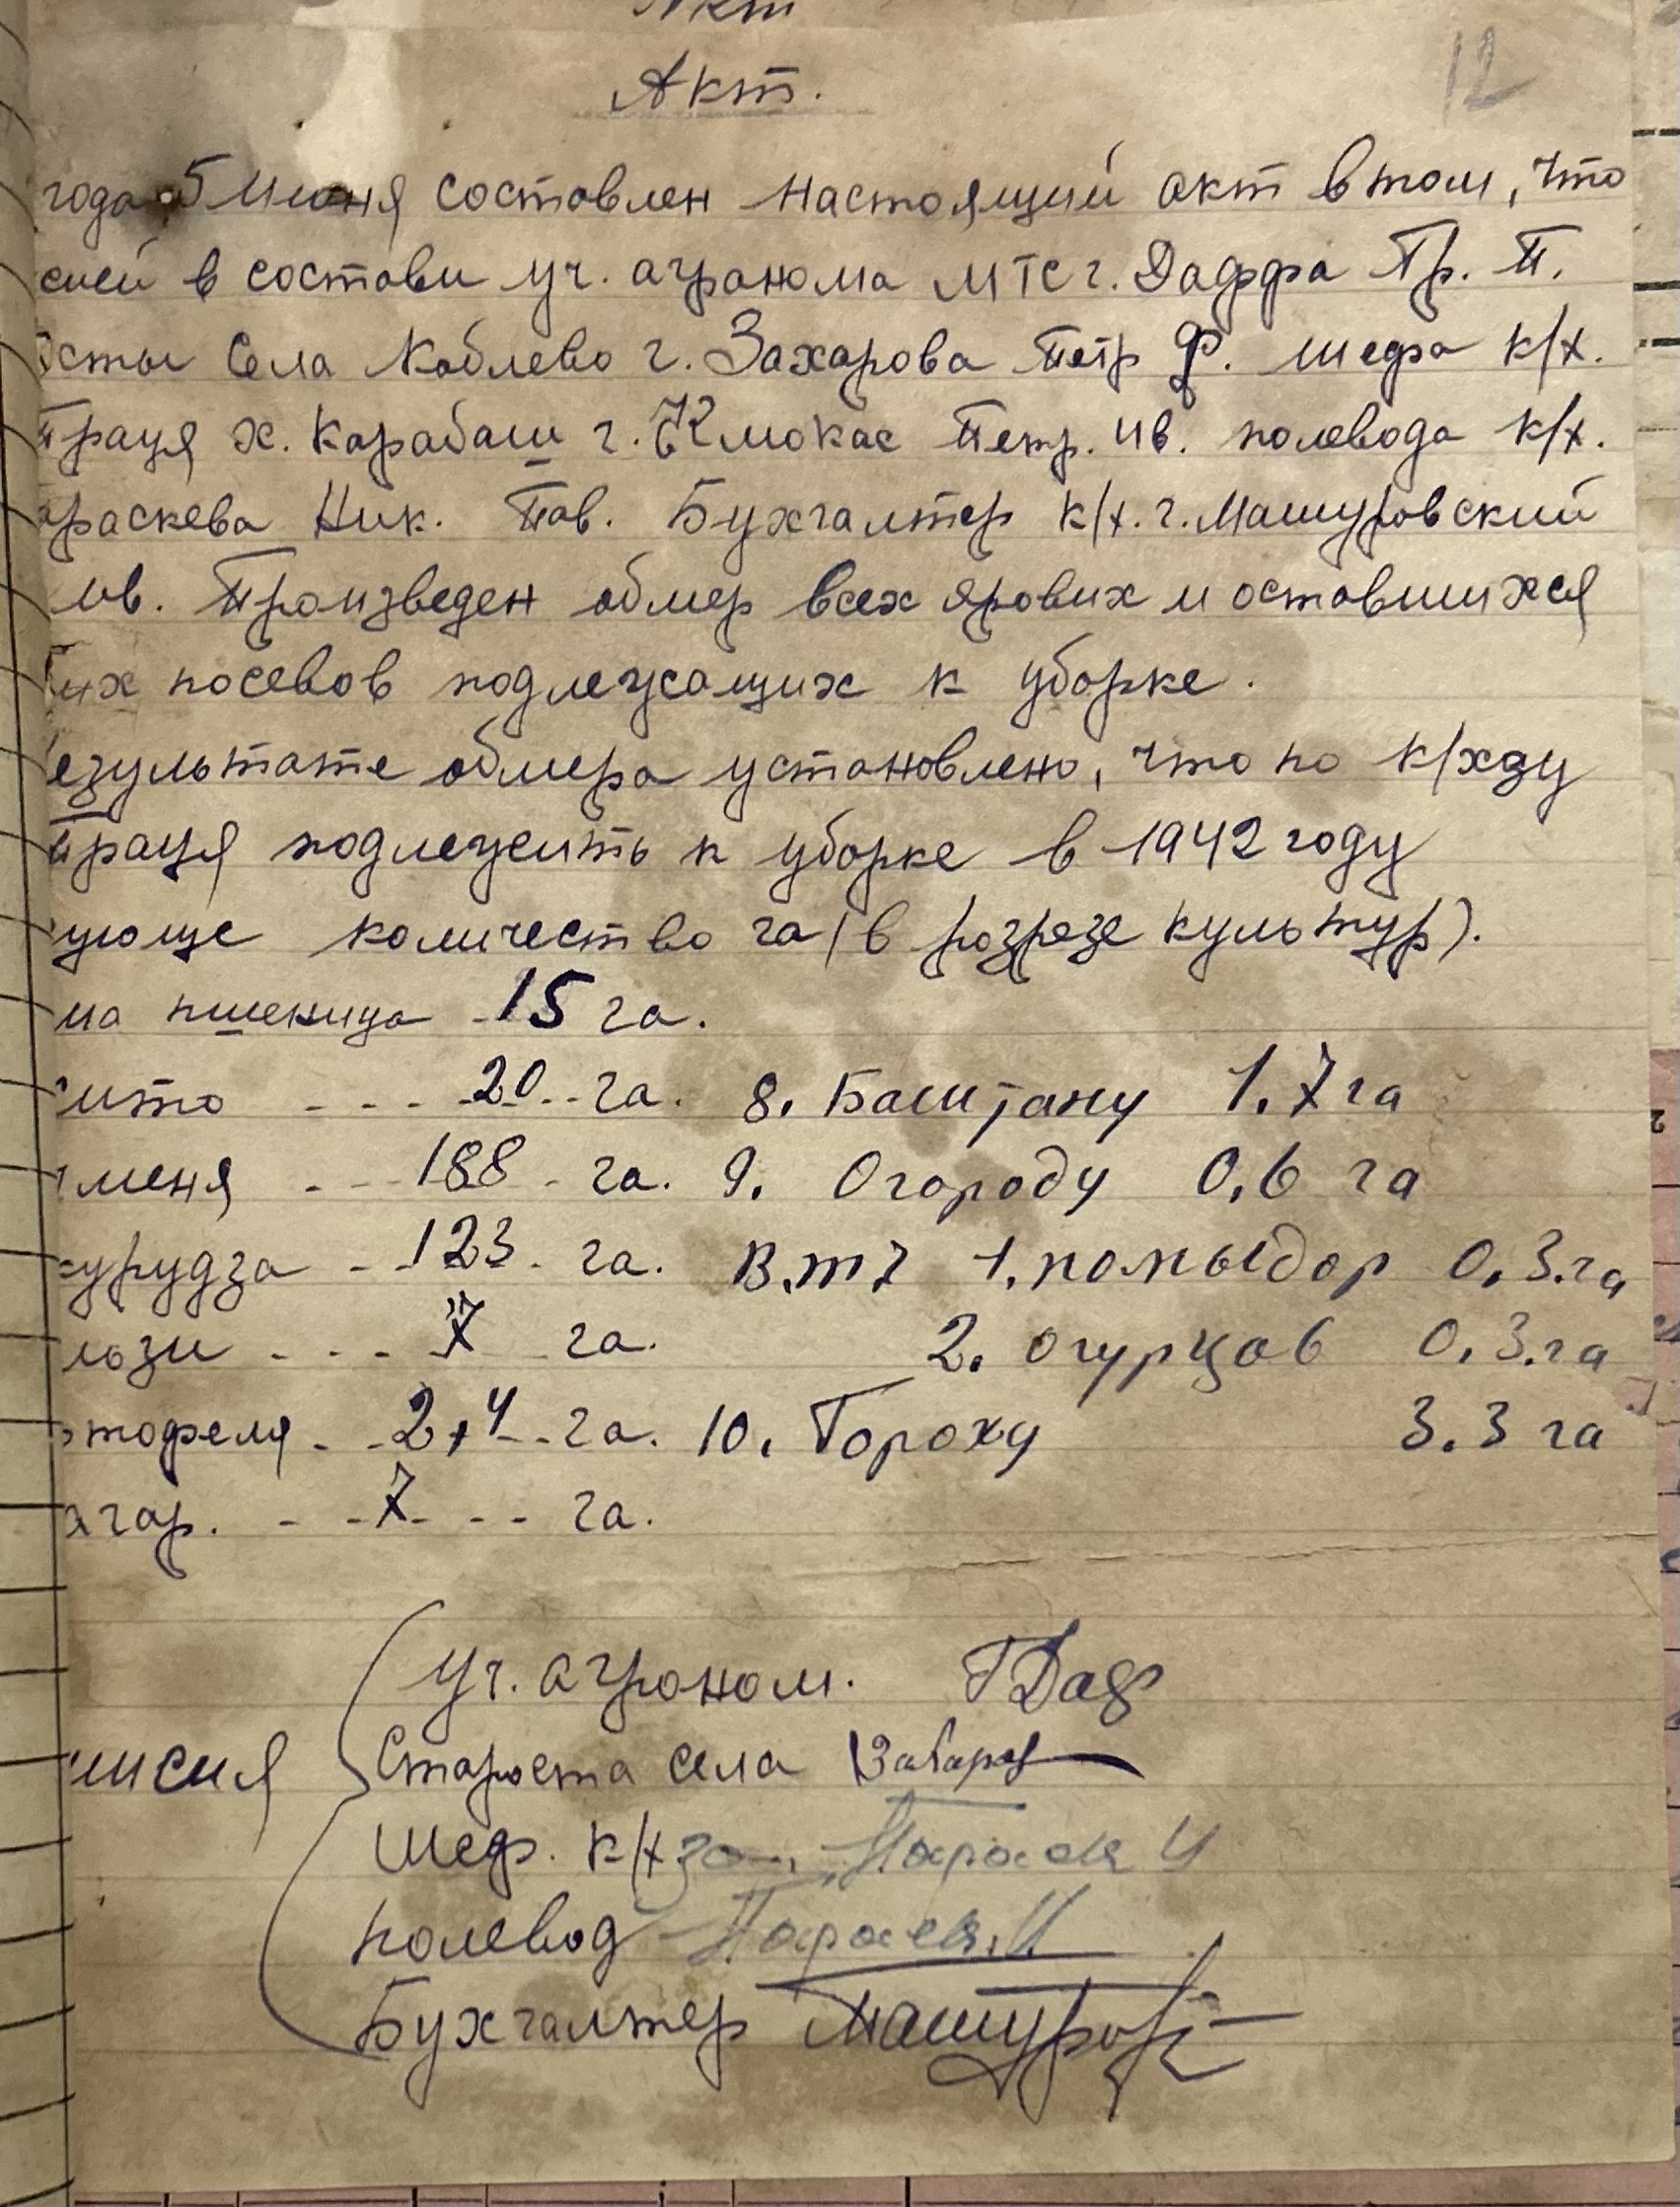 Акт
12
Акт.
года 5 Июня составлен настоящий акт в том, что
сией в состави уч. агранома МТС г. Даффа Пр. П.
осты Села Коблево г. Захарова Петр Ф. шефа к/х.
Праця х. Карабаш г. Клюкас Петр. Ив. полевода к/х.
араскева Ник. Пав. Бухгалтер к/х. г. Машуровский
ив. Произведен обмер всех яровых и оставшихся
их посевов подлежащих к уборке.
езультате обмера установлено, что по к/хзу
Праця подлежить к уборке в 1942 году
ующе количество га (в розрезе культур).
ма пшеница 15 га.
ито - - - 20 - - га. 8. Баштану 1.7 га
меня - - - 188 - га. 9. Огороду 0,6 га
курудза - - 123 - га. В.т ч 1. помыдор 0,3.га
7 га. 2. огурцов 0,3.га
ртофеля - - 2,4 - - га. 10. Гороху 3.3 га
агар. - - 7 - - - га.
Уч. агроном. ГДаф
миссия Староста села Захаров
Шеф. к/хза. Параск И
полевод Параск. И
Бухгалтер Машуров